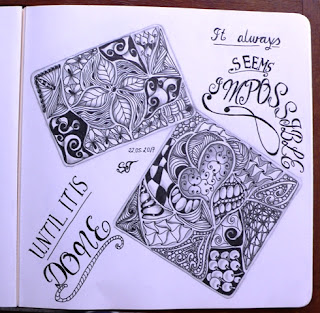 It always
SEEMS
IMPOSSIBLE
22.05.2017
UNTIL IT IS
DONE